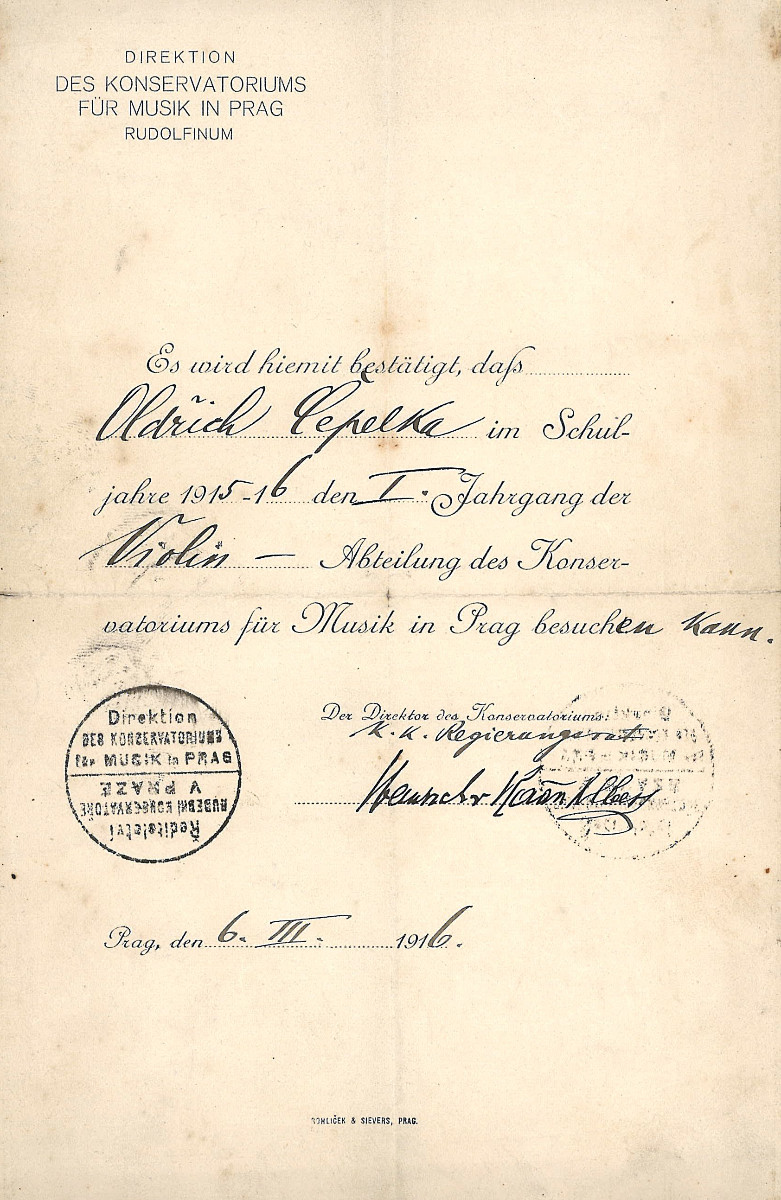 DIREKTION
DES KONSERVATORIUMS
FÜR MUSIK IN PRAG
RUDOLFINUM
Es wird hiemit bestätigt, daſs
Oldřich Čepelka im Schul-
jahre 1915-16 den I. Jahrgang der
Violin — Abteilung des Konser-
vatoriums für Musik in Prag besuchen kann.
Der Direktor des Konservatoriums:
K. K. Regierungsrat
Direktion
DES KONZERVATORIUMS
für MUSIK in PRAG
V PRAZE
HUDEBNÍ KONSERVATOŘE
Ředitelství
Prag, den 6. III. 1916.
ROHLIČEK & SIEVERS, PRAG.